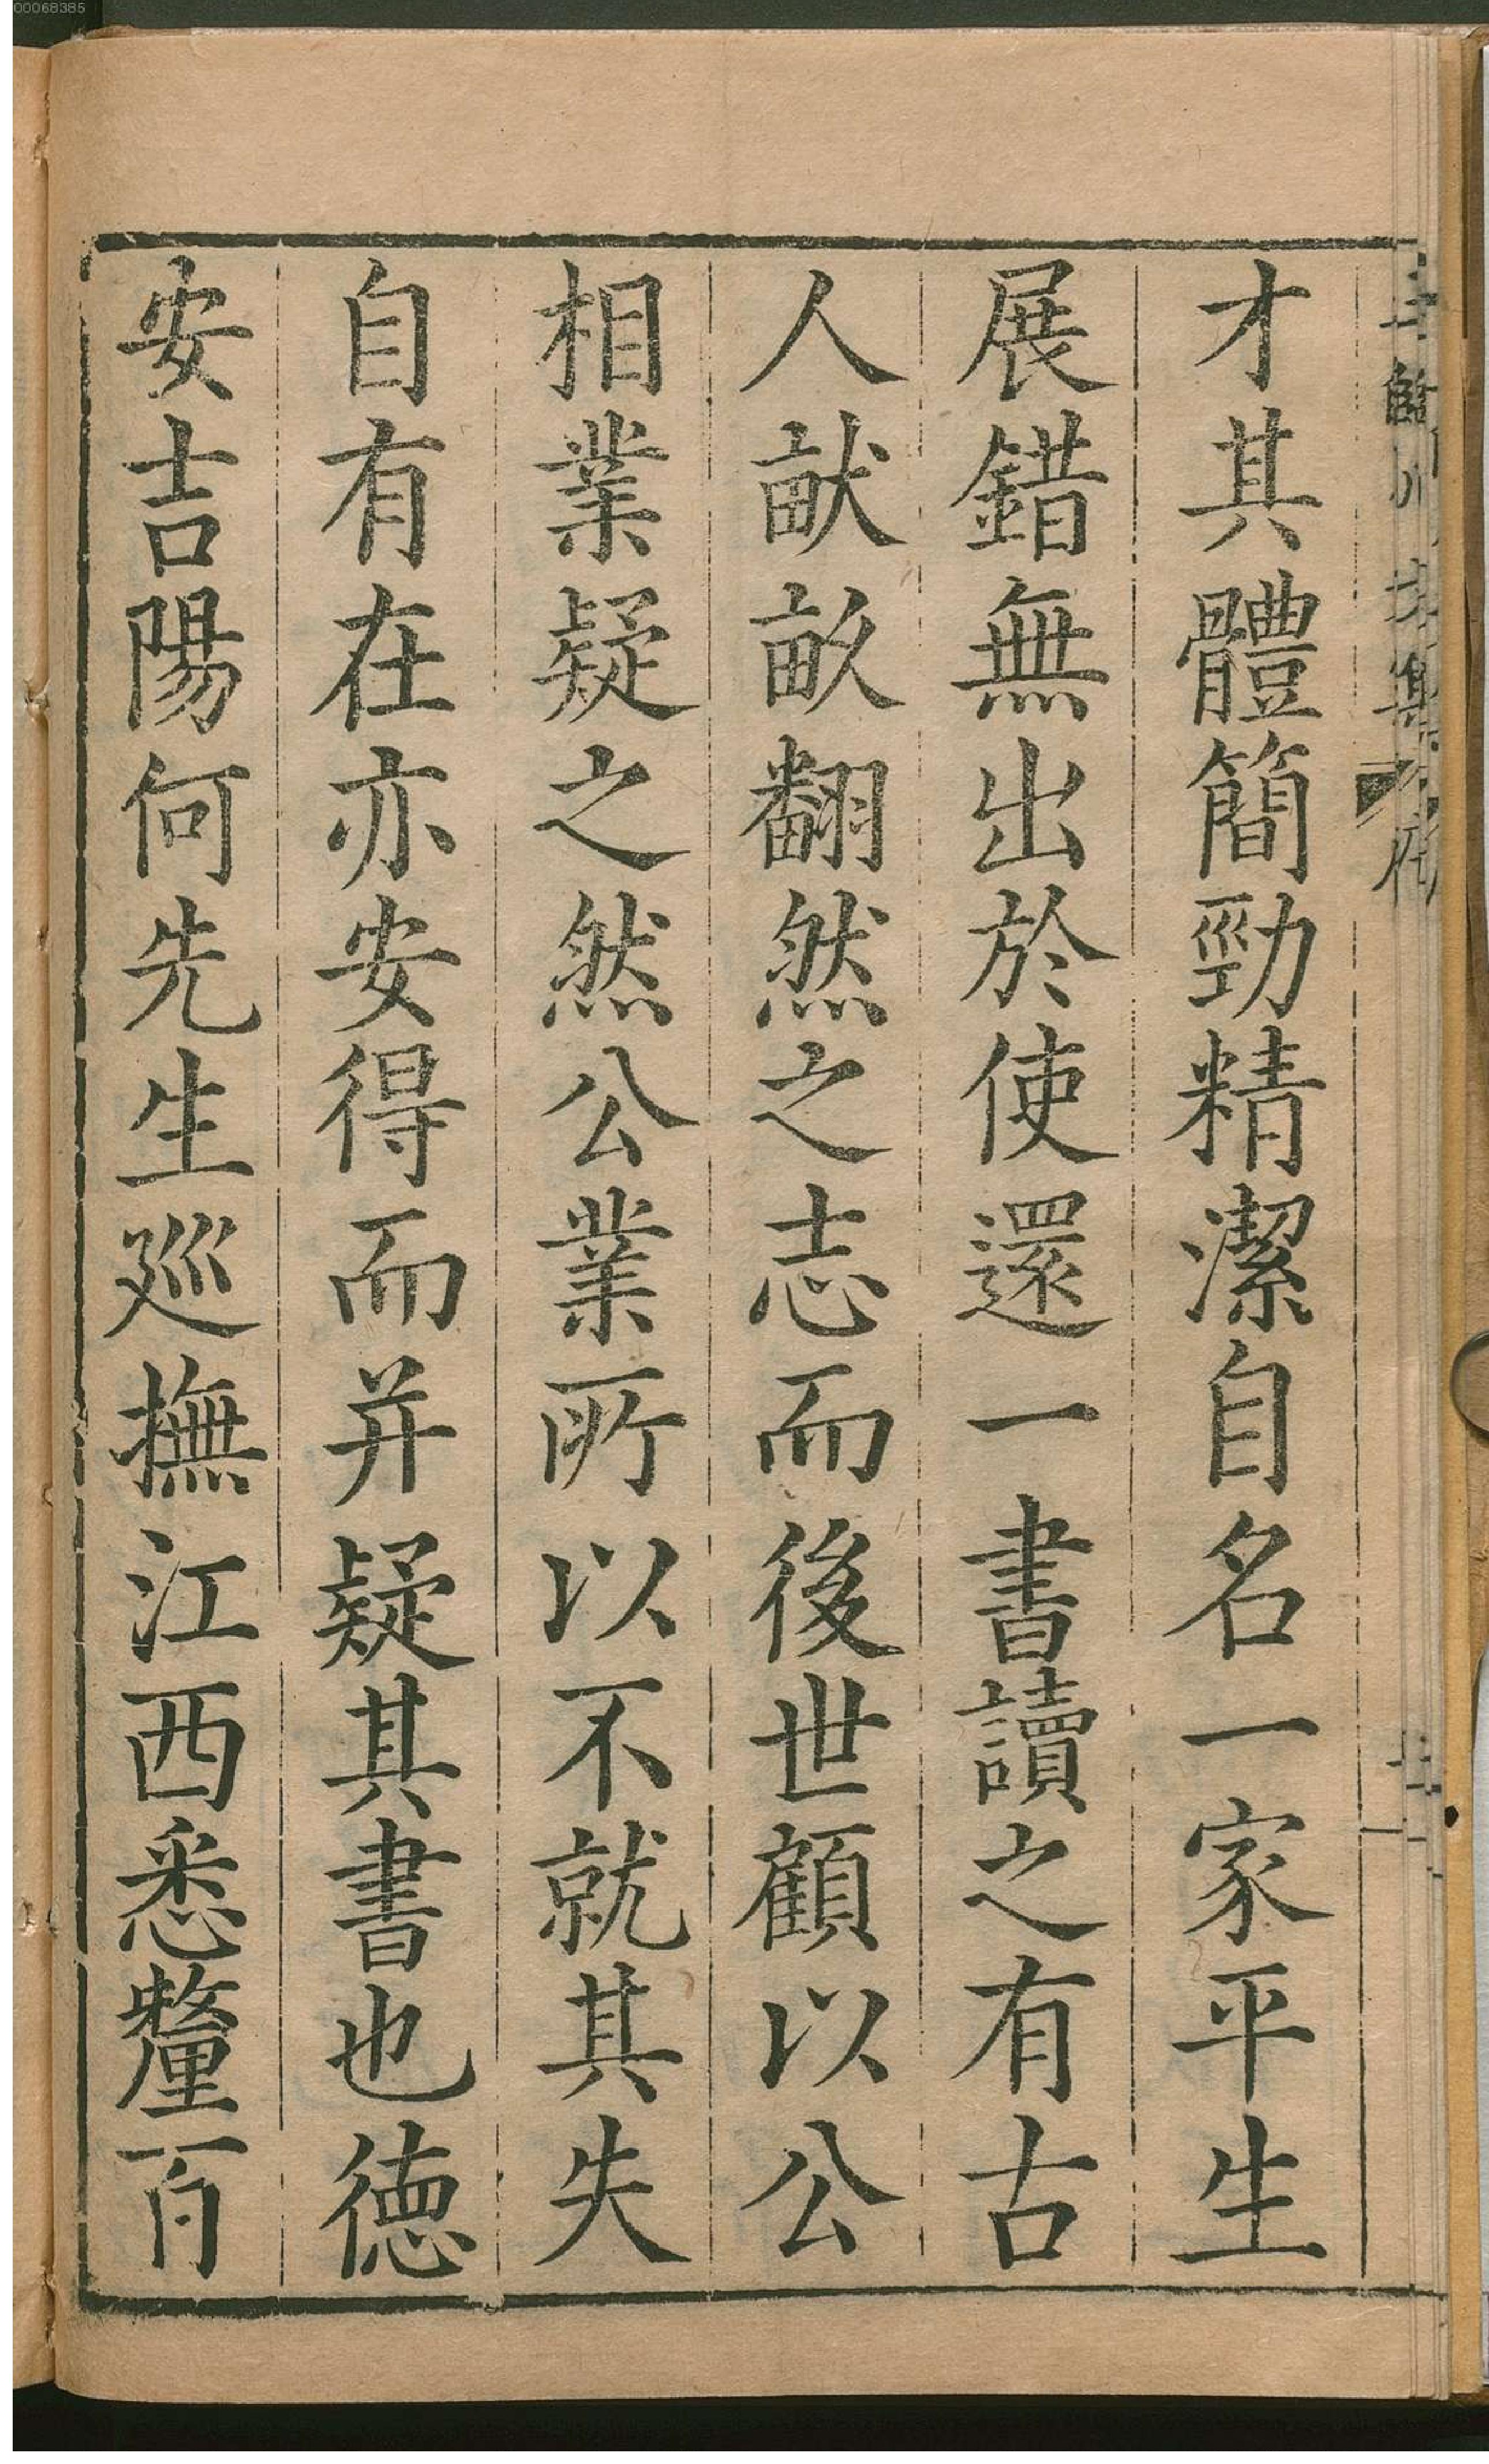 00068385
才其體簡勁精潔自名一家平生
展錯無出於使還一書讀之有古
人畎畝翻然之志而後世顧以公
相業疑之然公業所以不就其失
自有在亦安得而并疑其書也德
安吉陽何先生廵撫江西悉釐百